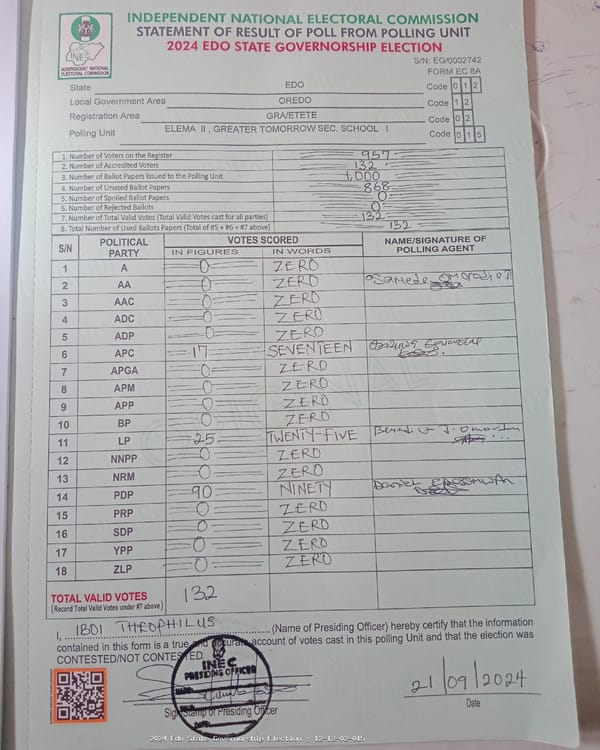 INDEPENDENT NATIONAL ELECTORAL COMMISSION
STATEMENT OF RESULT OF POLL FROM POLLING UNIT
2024 EDO STATE GOVERNORSHIP ELECTION
INEC
INDEPENDENT NATIONAL
ELECTORAL COMMISSION
S/N: EG/0002742
FORM EC 8A
State EDO Code 0 1 2
Local Government Area OREDO Code 1 2
Registration Area GRA/ETETE Code 0 2
Polling Unit ELEMA II , GREATER TOMORROW SEC. SCHOOL I Code 0 1 5
1. Number of Voters on the Register 957
2. Number of Accredited Voters 132
3. Number of Ballot Papers Issued to the Polling Unit 1,000
4. Number of Unused Ballot Papers 868
5. Number of Spoiled Ballot Papers 0
6. Number of Rejected Ballots 0
7. Number of Total Valid Votes (Total Valid Votes cast for all parties) 132
8. Total Number of Used Ballots Papers (Total of #5 + #6 + #7 above) 132
S/N POLITICAL PARTY VOTES SCORED NAME/SIGNATURE OF POLLING AGENT
IN FIGURES IN WORDS
1 A 0 ZERO
2 AA 0 ZERO
3 AAC 0 ZERO
4 ADC 0 ZERO
5 ADP 0 ZERO
6 APC 17 SEVENTEEN
7 APGA 0 ZERO
8 APM 0 ZERO
9 APP 0 ZERO
10 BP 0 ZERO
11 LP 25 TWENTY-FIVE
12 NNPP 0 ZERO
13 NRM 0 ZERO
14 PDP 90 NINETY Daniel
15 PRP 0 ZERO
16 SDP 0 ZERO
17 YPP 0 ZERO
18 ZLP 0 ZERO
TOTAL VALID VOTES 132
(Record Total Valid Votes under #7 above)
I, IBOI THEOPHILUS (Name of Presiding Officer) hereby certify that the information
contained in this form is a true and accurate account of votes cast in this polling Unit and that the election was
CONTESTED/NOT CONTESTED
INEC
PRESIDING OFFICER
21/09/2024
Sign/Stamp of Presiding Officer
Date
2024 Edo State Governorship Election : 12-12-02-015